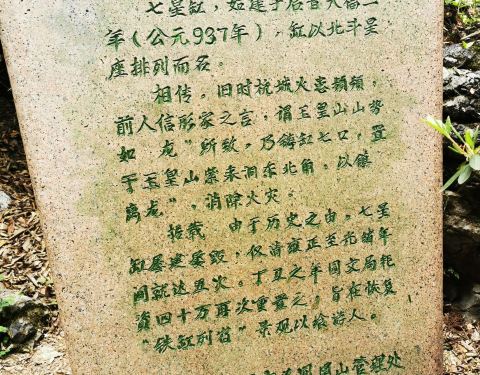 七星缸，始建于后晋天福二
年（公元937年），缸以北斗星
座排列而名。
相传，旧时杭城火患频频，
前人信形家之言，谓玉皇山山势
如 龙”所致，乃铸缸七口，置
于玉皇山紫来洞东北角，以镇
离龙”，消除火灾。
据载 由于历史之由，七星
缸屡建屡毁，仅清雍正至光绪年
间就达五次。丁丑之年园文局耗
资四十万再次重置之，旨在恢复
“铁缸列宿”景观以给游人。
山管理处